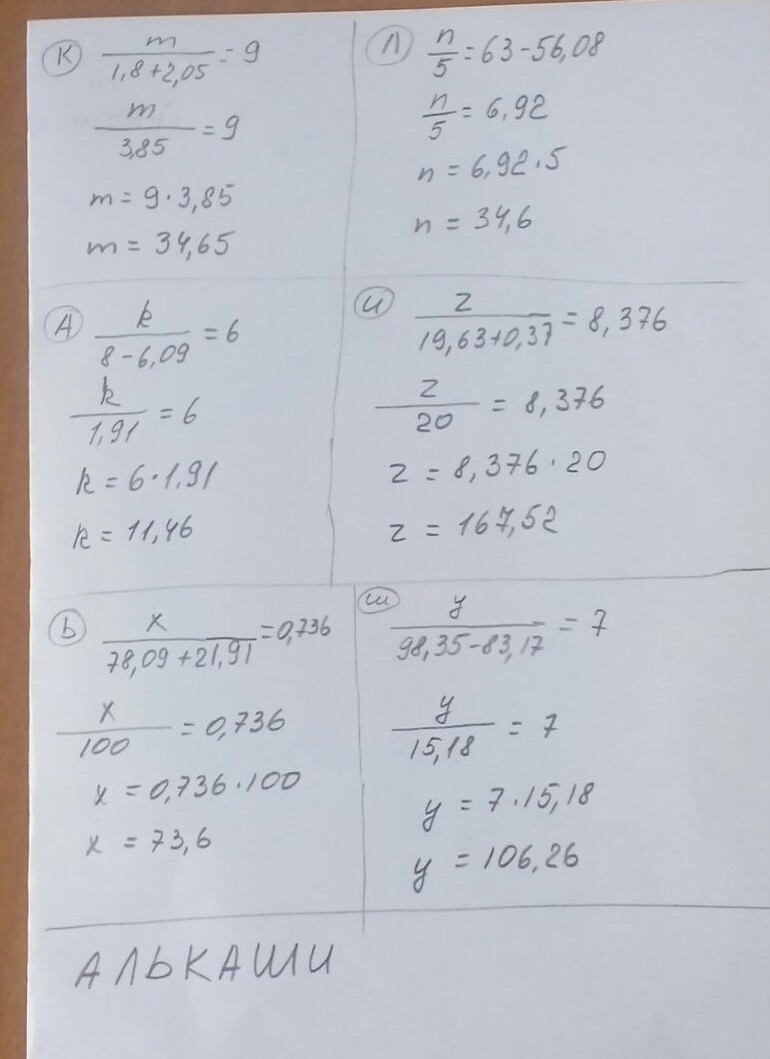 К m/(1,8+2,05) = 9
m/3,85 = 9
m = 9·3,85
m = 34,65
Л n/5 = 63-56,08
n/5 = 6,92
n = 6,92·5
n = 34,6
А k/(8-6,09) = 6
k/1,91 = 6
k = 6·1,91
k = 11,46
И z/(19,63+0,37) = 8,376
z/20 = 8,376
z = 8,376·20
z = 167,52
Ь x/(78,09+21,91) = 0,736
x/100 = 0,736
x = 0,736·100
x = 73,6
Ш y/(98,35-83,17) = 7
y/15,18 = 7
y = 7·15,18
y = 106,26
АЛЬКАШИ